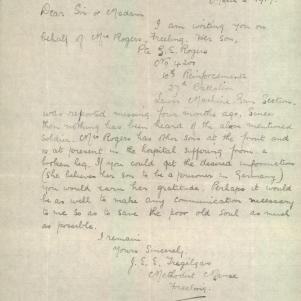 Dear Sir or Madam
I am writing you on
behalf of Mrs Rogers, Freeling. Her son,
Pte S. E. Rogers
No 4200
10th Reinforcements
27th Battalion
Lewis Machine Gun Section,
was reported missing four months ago, since
then nothing has been heard of the above mentioned
soldier. Mrs Rogers has other sons at the front and
is at present in the hospital suffering from a
broken leg. If you could get the desired information
(she believes her son to be a prisoner in Germany)
you would earn her gratitude. Perhaps it would
be as well to make any communication necessary
to me so as to save the poor old soul as much
as possible.
I remain
Yours Sincerely,
J. E. E.
Methodist Manse
Freeling.